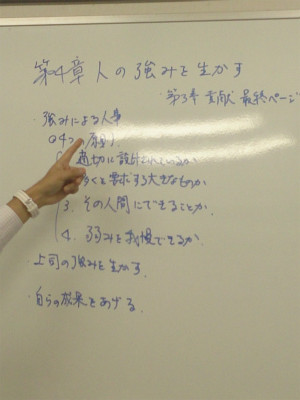 第4章 人の強みを生かす
・第3章 貢献 最終ページ
・強みによる人事
◎4つの原則
適切に設計されているか
多くを要求する大きなものか
3. その人間にできることか
4. 弱みを我慢できるか
・上司の強みを生かす
・自らの成果をあげる